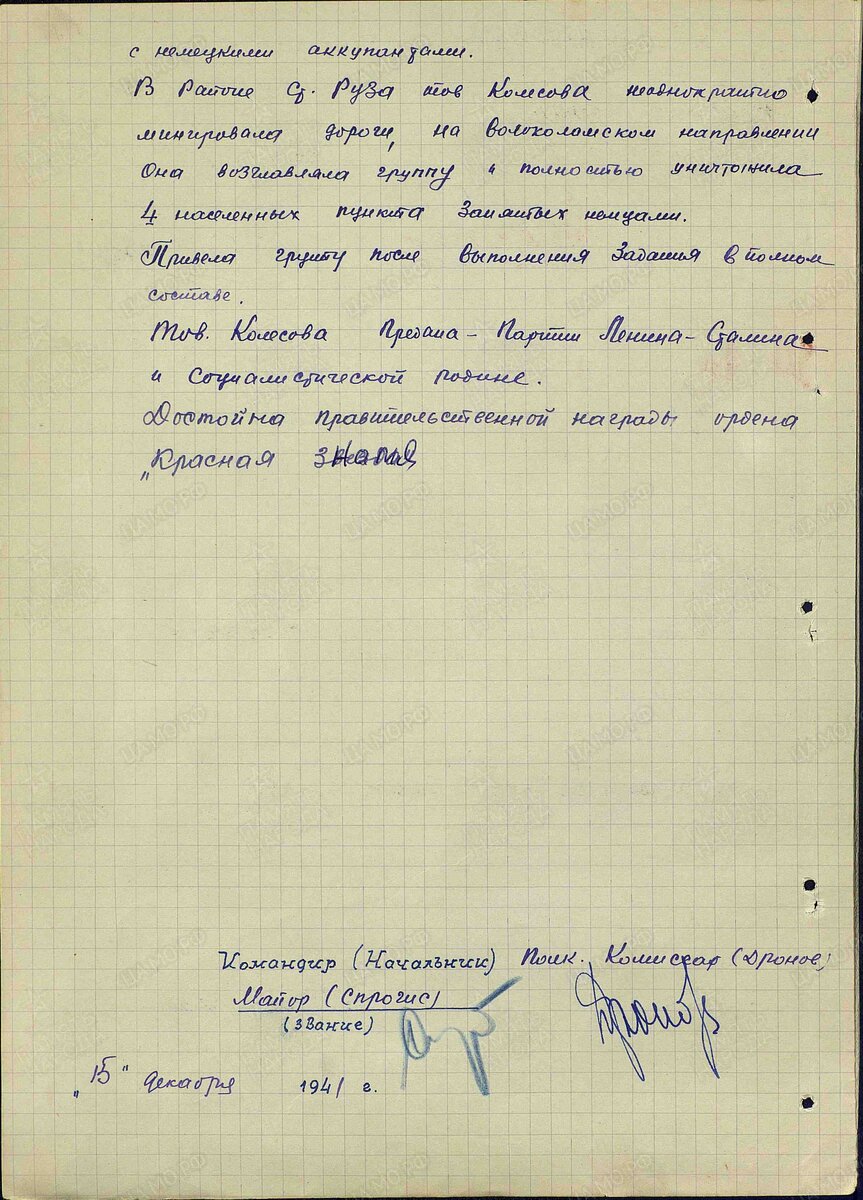 с немецкими аккупантами.
В Районе Ст. Руза тов Колесова неоднократно
минировала дороги, на Волоколамском направлении
Она возглавляла группу и полностью уничтожила
4 населенных пункта Занятых немцами.
Привела группу после выполнения Задания в полном
составе.
Тов. Колесова Предана - Партии Ленина - Сталина
и Социалистической родине.
Достойна правительственной награды ордена
„Красная знамя
Командир (Начальник) Полк. Комиссар (Дронов)
Майор (Спрогис)
(звание)
Дронов
„15" декабря 1941 г.
ЦАМО.РФ
ПАМЯТЬ НАРОДА